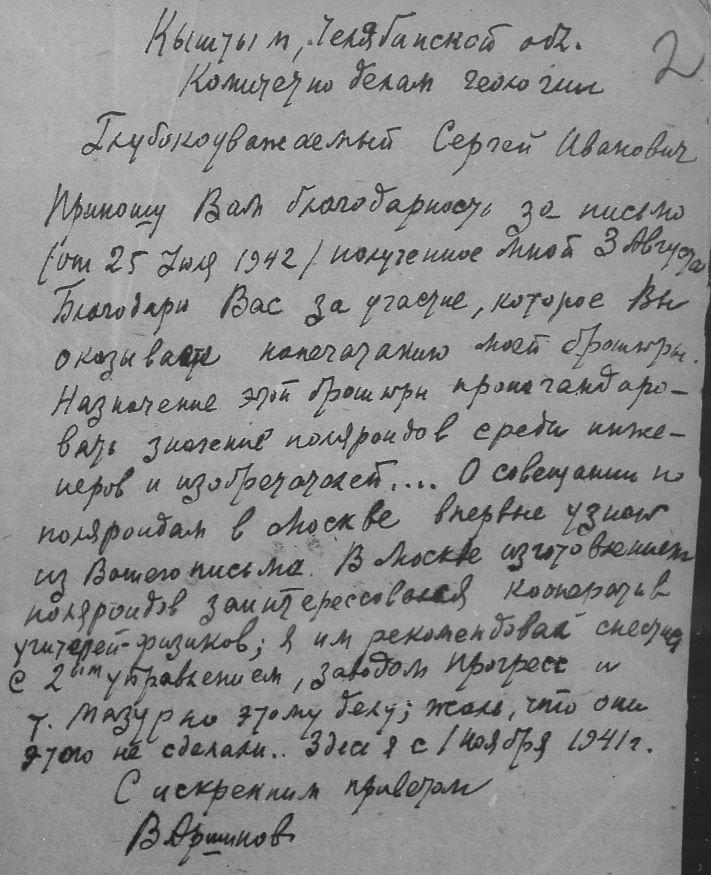 Кыштым, Челябинской обл.
2
Комитет по делам геологии
Глубокоуважаемый Сергей Иванович
Приношу Вам благодарность за письмо
(от 25 Июля 1942) полученное мной 3 Августа
Благодарю Вас за участие, которое Вы
оказываете напечатанию моей брошюры.
Назначение этой брошюры пропагандиро-
вать значение поляроидов среди инже-
неров и изобретателей.... О совещании по
поляроидам в Москве впервые узнал
из Вашего письма. В Москве изготовлением
поляроидов заинтерессовался кооператив
учителей-физиков; я им рекомендовал снестись
с 2ым управлением, заводом Прогресс и
т. Мазур по этому делу; жаль, что они
этого не сделали.. Здесь я с 1 ноября 1941 г.
С искренним приветом
В Аршинов